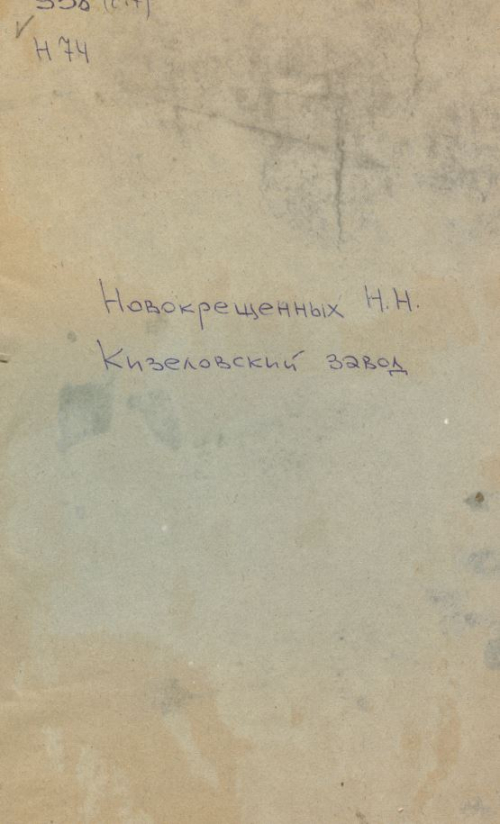 Н 74
Новокрещенных Н.Н.
Кизеловский завод